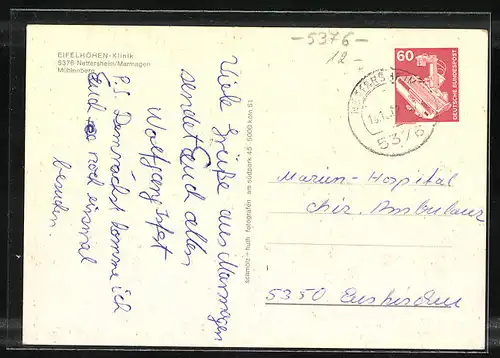 EIFELHÖHEN-Klinik
5376 Nettersheim/Marmagen
Mühlenberg
Viele Grüße aus Marmagen
sendet Euch allen
Wolfgang
P.S. Demnächst komme ich
Euch noch einmal
besuchen.
schmölz + huth fotografen am südpark 45 5000 köln 51
-5376-
12-
60
DEUTSCHE BUNDESPOST
5376
Marien-Hospital
Chir. Ambulanz
5350 Euskirchen